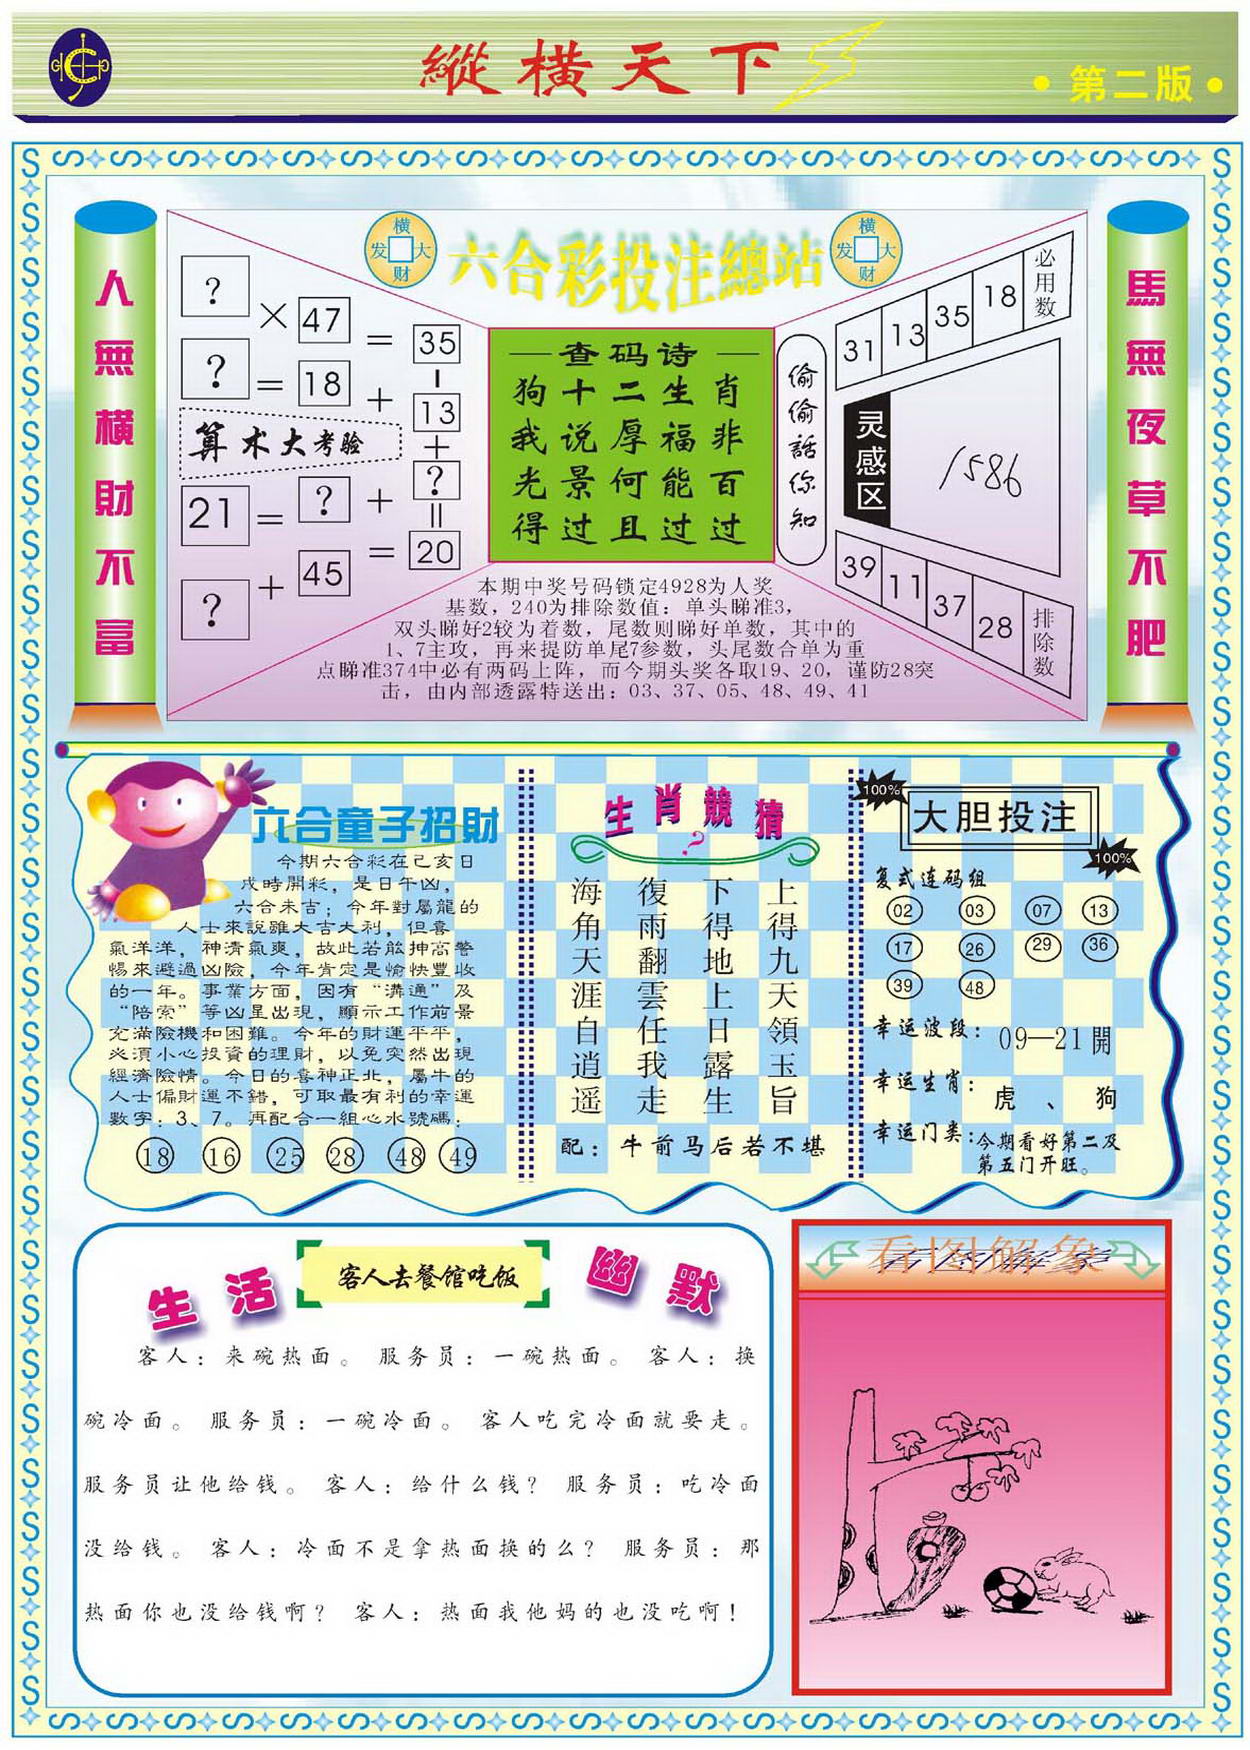 縱橫天下
·第二版·
人無橫財不富
馬無夜草不肥
六合彩投注總站
横大财发
横大财发
? × 47 = 35
? = 18 + 13
算术大考验
21 = ? + ?
? + 45 = 20
一查码诗一
狗十二生肖
我说厚福非
光景何能百
得过且过过
偷偷話你知
31 13 35 18 必用数
灵感区
1586
39 11 37 28 排除数
本期中奖号码锁定4928为人奖
基数，240为排除数值：单头睇准3，
双头睇好2较为着数，尾数则睇好单数，其中的
1、7主攻，再来提防单尾7参数，头尾数合单为重
点睇准374中必有两码上阵，而今期头奖各取19、20，谨防28突
击，由内部透露特送出：03、37、05、48、49、41
六合童子招財
今期六合彩在己亥日
戌時開彩，是日午凶，
六合未吉；今年對屬龍的
人士來說雖大吉大利，但喜
氣洋洋，神清氣爽，故此若能押高警
惕來避過凶險，今年肯定是愉快豐收
的一年。事業方面，因有“溝通”及
“陪索”等凶星出現，顯示工作前景
充滿險機和困難。今年的財運平平，
必須小心投資的理財，以免突然出現
經濟險情。今日的喜神正北，屬牛的
人士偏財運不錯，可取最有利的幸運
數字：3、7。再配合一組心水號碼：
18 16 25 28 48 49
生肖競猜
?
上得九天領玉旨
下得地上日露生
復雨翻雲任我走
海角天涯自逍遥
配：牛前马后若不堪
100%
大胆投注
100%
复式连码组
02 03 07 13
17 26 29 36
39 48
幸运波段：09—21開
幸运生肖：虎、狗
幸运门类：今期看好第二及
第五门开旺。
生活
客人去餐馆吃饭
幽默
客人：来碗热面。 服务员：一碗热面。 客人：换
碗冷面。 服务员：一碗冷面。 客人吃完冷面就要走。
服务员让他给钱。 客人：给什么钱？ 服务员：吃冷面
没给钱。 客人：冷面不是拿热面换的么？ 服务员：那
热面你也没给钱啊？ 客人：热面我他妈的也没吃啊！
看图解象